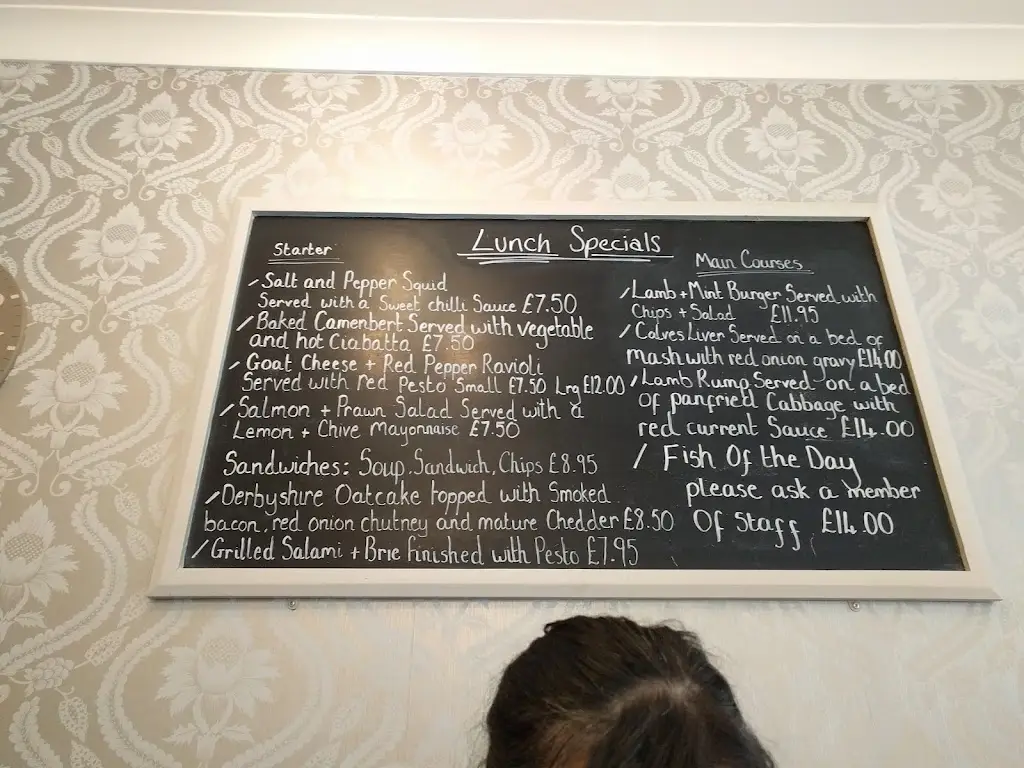 Lunch Specials
Starter
/Salt and Pepper Squid
Served with a Sweet chilli Sauce £7.50
/Baked Camenbert Served with vegetable
and hot Ciabatta £7.50
/Goat Cheese + Red Pepper Ravioli
Served with red Pesto Small £7.50 Lrg £12.00
/Salmon + Prawn Salad Served with a
Lemon + Chive Mayonnaise £7.50
Sandwiches: Soup, Sandwich, Chips £8.95
/Derbyshire Oatcake topped with Smoked
bacon, red onion chutney and mature Chedder £8.50
/Grilled Salami + Brie finished with Pesto £7.95
Main Courses
/Lamb + Mint Burger Served with
Chips + Salad £11.95
/Calves Liver Served on a bed of
mash with red onion gravy £14.00
/Lamb Rump Served on a bed
of panfried Cabbage with
red current Sauce £14.00
/ Fish Of the Day
please ask a member
Of Staff £14.00